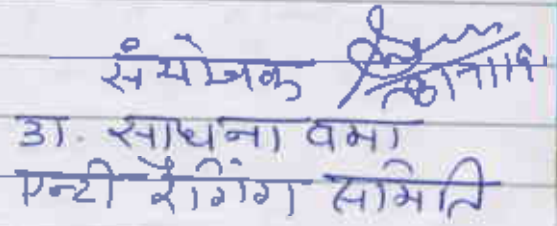 संयोजक
डा. साधना वर्मा
एन्टी रैगिंग समिति